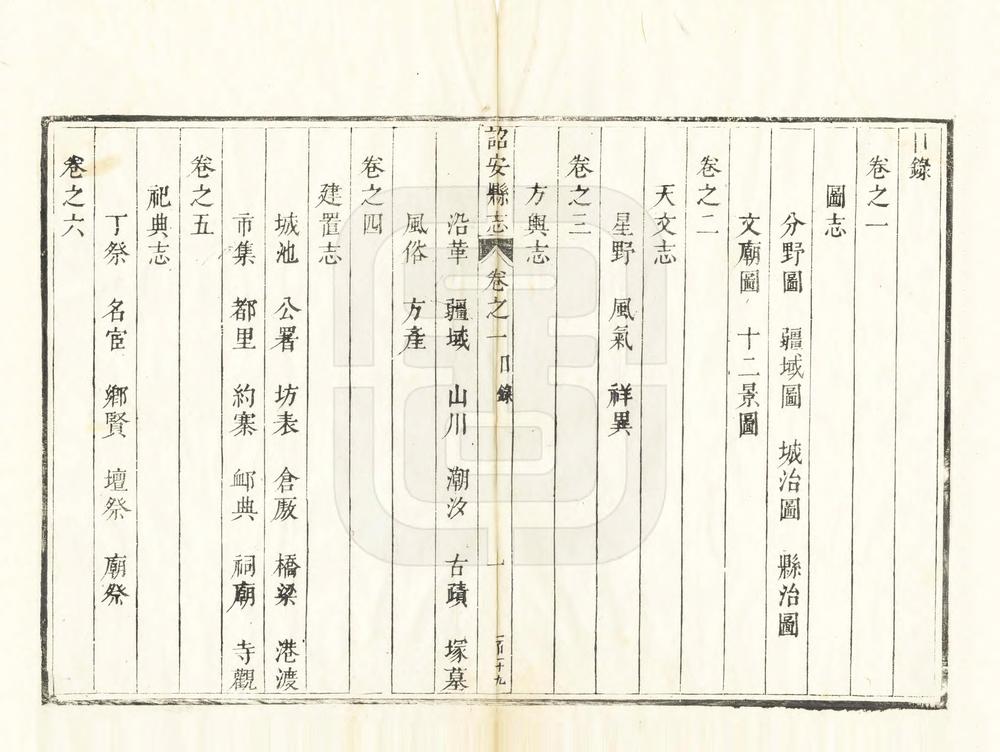 目錄
卷之一
圖志
分野圖 疆域圖 城治圖 縣治圖
文廟圖 十二景圖
卷之二
天文志
星野 風氣 祥異
卷之三
方輿志
詔安縣志 卷之一 目錄 一
沿革 疆域 山川 潮汐 古蹟 塚墓
風俗 方產
卷之四
建置志
城池 公署 坊表 倉厫 橋梁 港渡
市集 都里 約寨 卹典 祠廟 寺觀
卷之五
祀典志
丁祭 名宦 鄉賢 壇祭 廟祭
卷之六